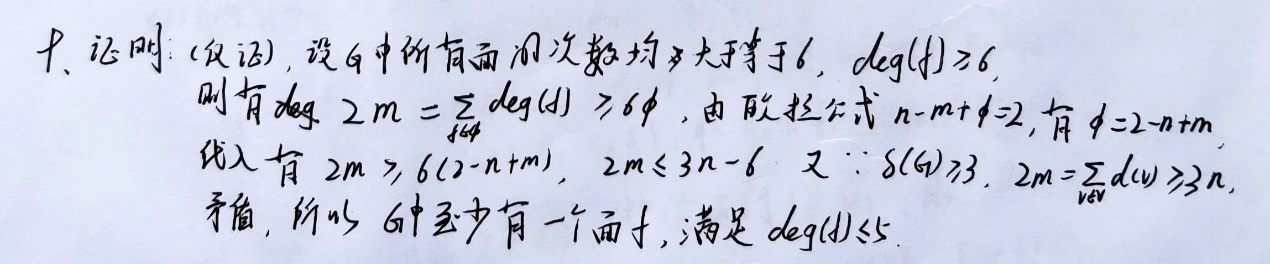 十、证明:(反证),设G中所有面的次数均大于等于6, deg(f)≥6,
则有 2m = ∑_{f∈ϕ} deg(f) ≥ 6ϕ, 由欧拉公式 n-m+ϕ=2, 有 ϕ=2-n+m,
代入有 2m ≥ 6(2-n+m), 2m ≤ 3n-6 又∵δ(G)≥3, 2m=∑_{v∈V} d(v) ≥3n,
矛盾, 所以 G中至少有一个面f, 满足 deg(f)≤5.